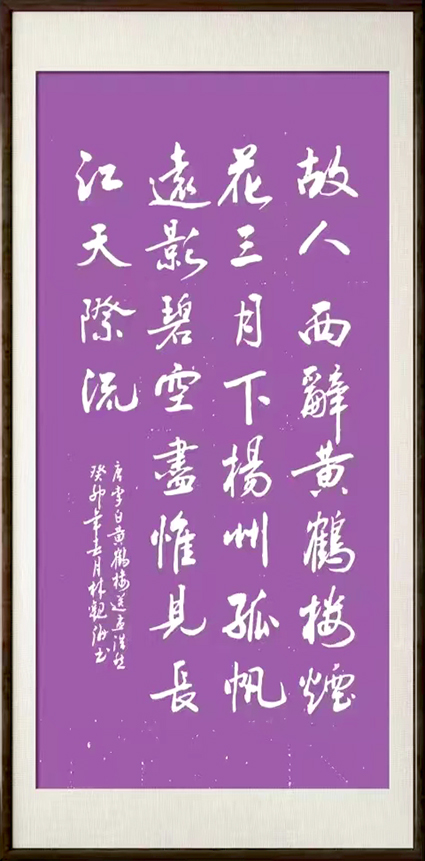 故人西辭黄鶴樓煙
花三月下揚州孤帆
遠影碧空盡惟見長
江天際流
唐李白黄鶴樓送孟浩然
癸卯年 月林觀海书